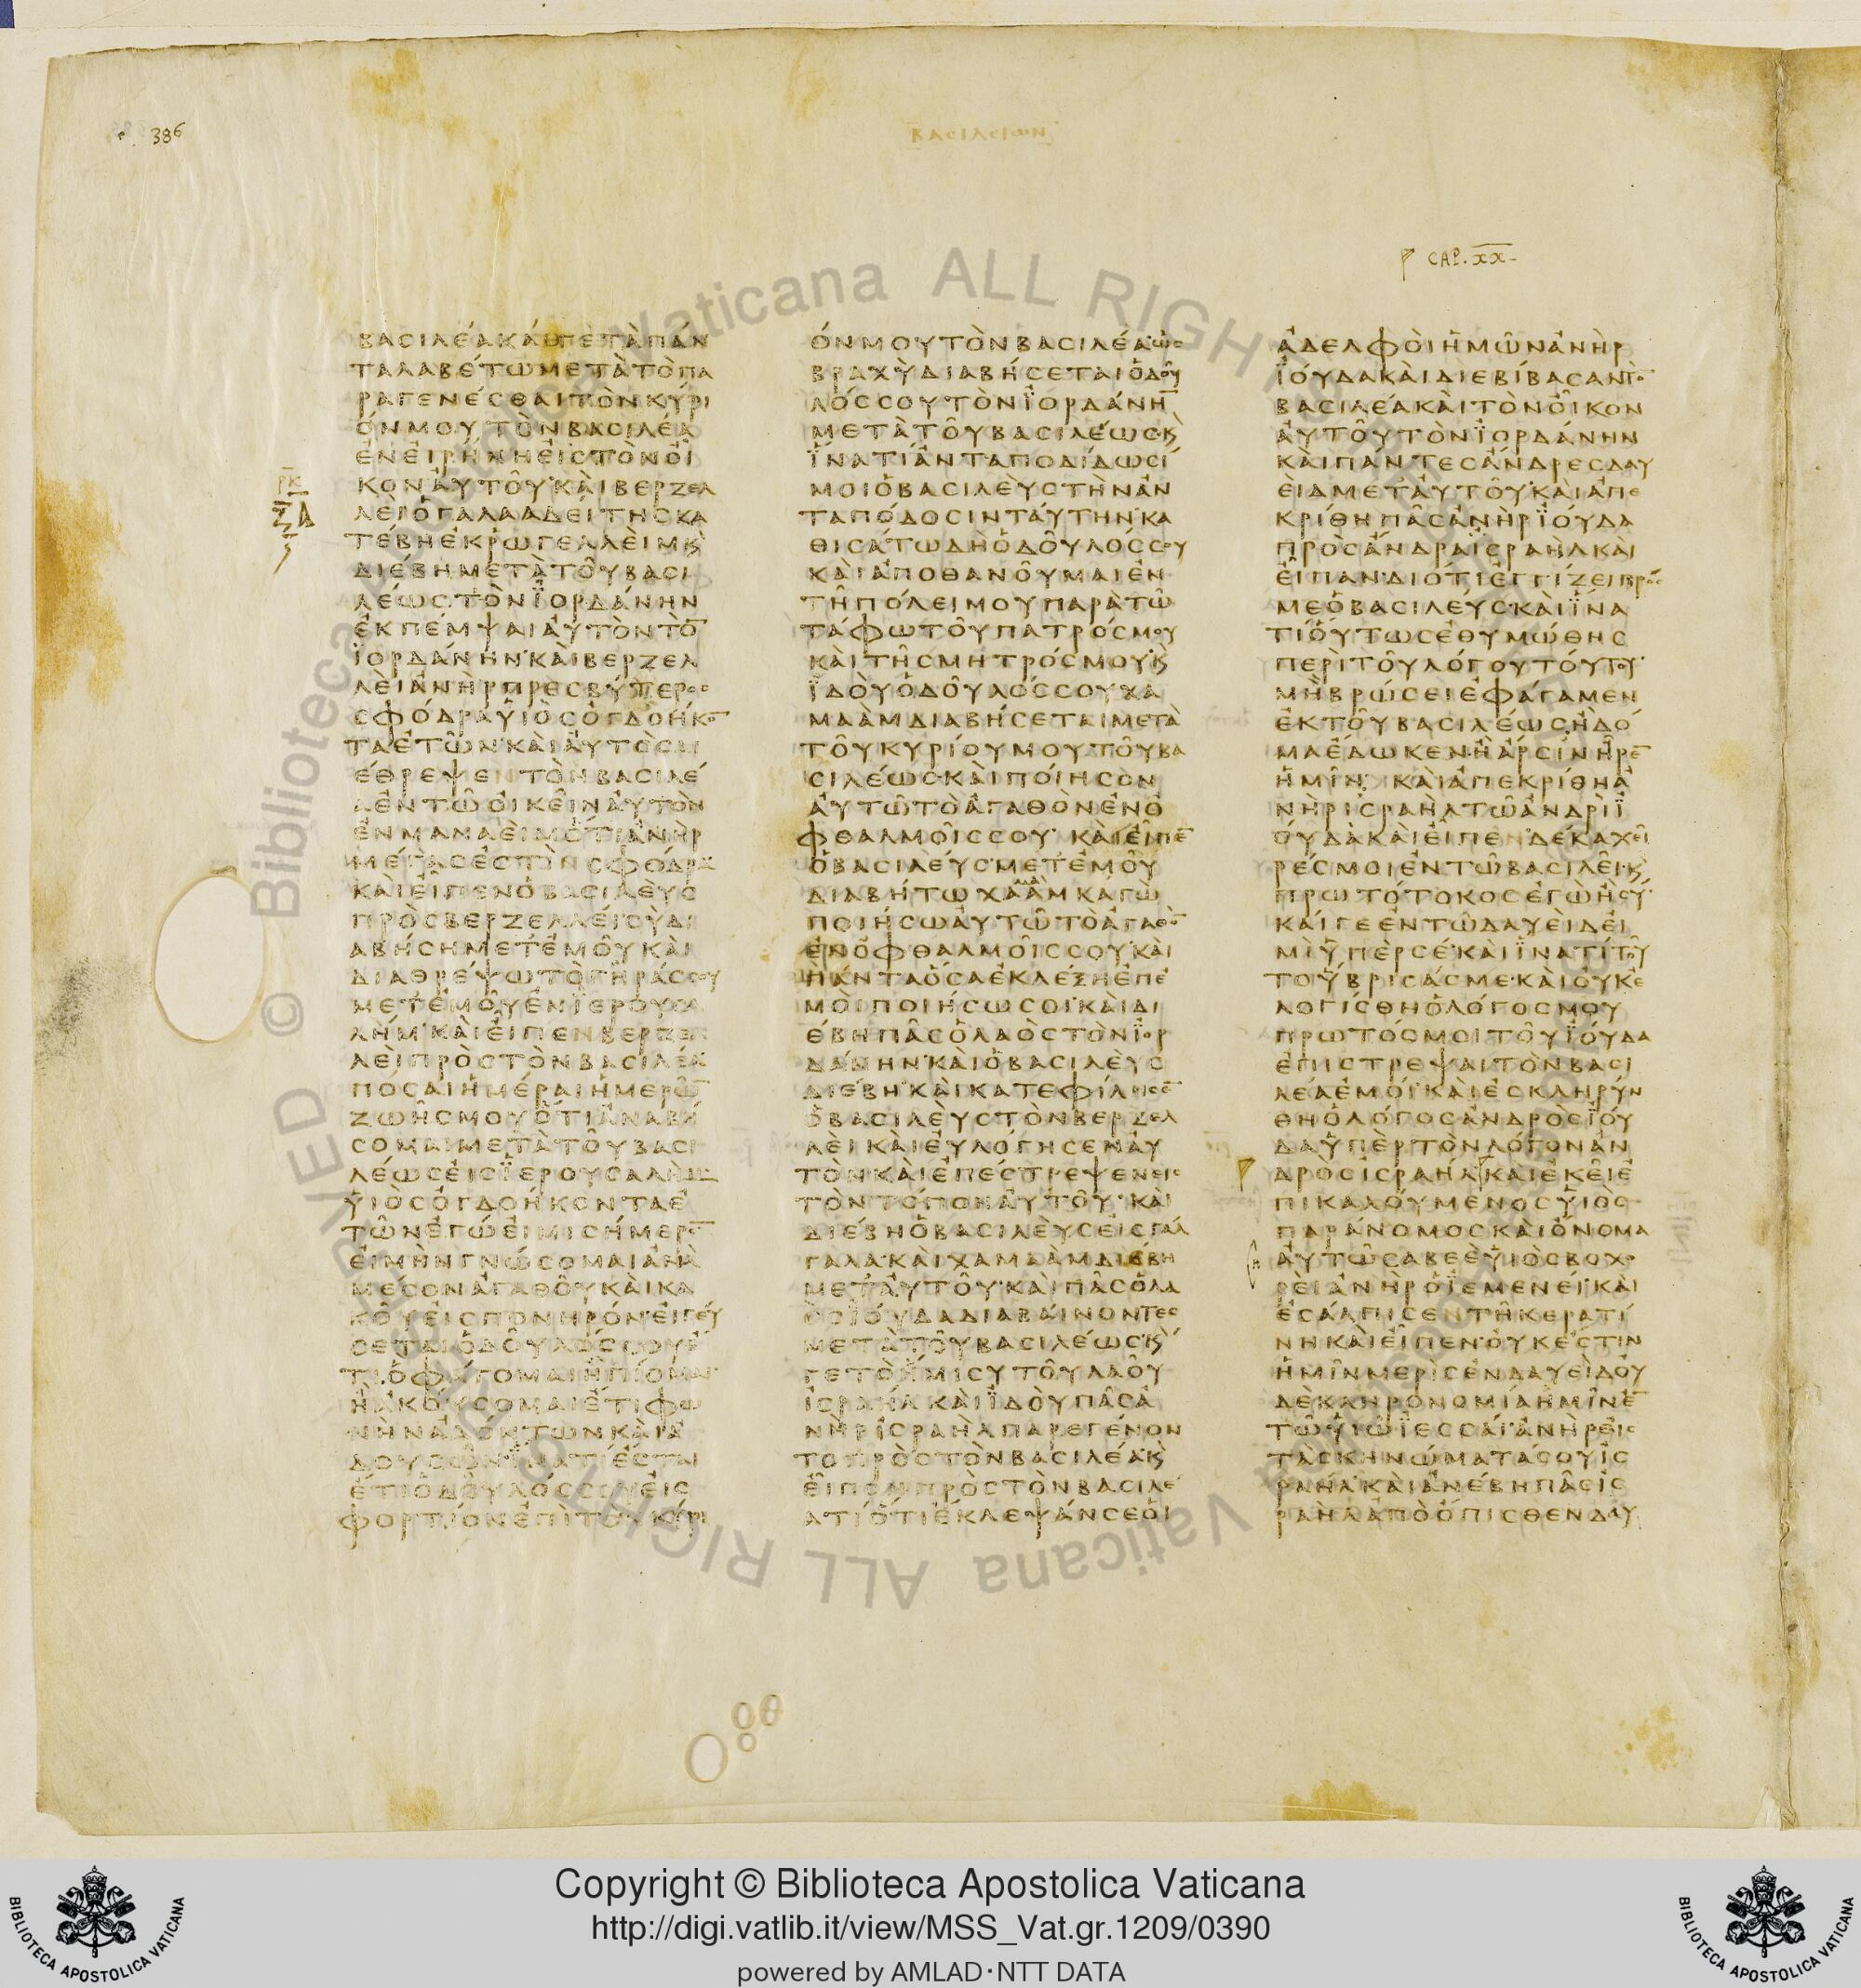 386
ΒΑCΙΛΕΙΩΝ
CAP. XX.
ΒΑCΙΛΕΑΚΑΙΕΙΠΕΓΑΠΑΝ
ΤΑΛΑΒΕΤΩΜΕΤΑΤΟΠΑ
ΡΑΓΕΝΕCΘΑΙΤΟΝΚΥΡΙ
ΟΝΜΟΥΤΟΝΒΑCΙΛΕΑ
ΕΝΕΙΡΗΝΗΕΙCΤΟΝΟΙ
ΚΟΝΑΥΤΟΥΚΑΙΒΕΡΖΕΛ
ΛΕΙΟΓΑΛΑΑΔΕΙΤΗCΚΑ
ΤΕΒΗΕΚΡΩΓΕΛΛΕΙΜΚ
ΔΙΕΒΗΜΕΤΑΤΟΥΒΑCΙ
ΛΕΩCΤΟΝΪΟΡΔΑΝΗΝ
ΕΚΠΕΜΨΑΙΑΥΤΟΝΤΟ̅
ΪΟΡΔΑΝΗΝΚΑΙΒΕΡΖΕΛ
ΛΕΙΑΝΗΡΠΡΕCΒΥΤΕΡΟC
CΦΟΔΡΑΥΙΟCΟΓΔΟΗΚΟ̅
ΤΑΕΤΩΝΚΑΙΑΥΤΟCΔΙ
ΕΘΡΕΨΕΝΤΟΝΒΑCΙΛΕ
ΑΕΝΤΩΟΙΚΕΙΝΑΥΤΟΝ
ΕΝΜΑΝΑΕΙΜΟΤΙΑΝΗΡ
ΜΕΓΑCΕCΤΙΝCΦΟΔΡΑ
ΚΑΙΕΙΠΕΝΟΒΑCΙΛΕΥC
ΠΡΟCΒΕΡΖΕΛΛΕΙCΥΔΙ
ΑΒΗCΗΜΕΤΕΜΟΥΚΑΙ
ΔΙΑΘΡΕΨΩΤΟΓΗΡΑCCΟΥ
ΜΕΤΕΜΟΥΕΝΪΕΡΟΥCΑ
ΛΗΜΚΑΙΕΙΠΕΝΒΕΡΖΕΛ
ΛΕΙΠΡΟCΤΟΝΒΑCΙΛΕΑ
ΠΟCΑΙΗΜΕΡΑΙΗΜΕΡΩ̅
ΖΩΗCΜΟΥΟΤΙΑΝΑΒΗ
CΟΜΑΙΜΕΤΑΤΟΥΒΑCΙ
ΛΕΩCΕΙCΪΕΡΟΥCΑΛΗΜ
ΥΙΟCΟΓΔΟΗΚΟΝΤΑΕ
ΤΩΝΕΓΩΕΙΜΙCΗΜΕΡΟ̅
ΕΙΜΗΝΓΝΩCΟΜΑΙΑΝΑ
ΜΕCΟΝΑΓΑΘΟΥΚΑΙΚΑ
ΚΟΥΕΙCΠΟΝΗΡΟΝΕΙΓΕΥ
CΕΤΑΙΟΔΟΥΛΟCCΟΥΕ
ΤΙΟΦΑΓΟΜΑΙΗΠΙΟΜΑΙ
ΗΑΚΟΥCΟΜΑΙΕΤΙΦΩ
ΝΗΝΑΔΟΝΤΩΝΚΑΙΑ
ΔΟΥCΩΝΪΝΑΤΙΕCΤΑΙ
ΕΤΙΟΔΟΥΛΟCCΟΥΕΙC
ΦΟΡΤΙΟΝΕΠΙΤΟΝΚΥΡΙ
ΟΝΜΟΥΤΟΝΒΑCΙΛΕΑΩC
ΒΡΑΧΥΔΙΑΒΗCΕΤΑΙΟΔΟΥ
ΛΟCCΟΥΤΟΝΪΟΡΔΑΝΗ̅
ΜΕΤΑΤΟΥΒΑCΙΛΕΩCΚ
ΪΝΑΤΙΑΝΤΑΠΟΔΙΔΩCΙ
ΜΟΙΟΒΑCΙΛΕΥCΤΗΝΑΝ
ΤΑΠΟΔΟCΙΝΤΑΥΤΗΝΚΑ
ΘΙCΑΤΩΔΗΟΔΟΥΛΟCCΟΥ
ΚΑΙΑΠΟΘΑΝΟΥΜΑΙΕΝ
ΤΗΠΟΛΕΙΜΟΥΠΑΡΑΤΩ
ΤΑΦΩΤΟΥΠΑΤΡΟCΜΟΥ
ΚΑΙΤΗCΜΗΤΡΟCΜΟΥΚ
ΪΔΟΥΟΔΟΥΛΟCCΟΥΧΑ
ΜΑΑΜΔΙΑΒΗCΕΤΑΙΜΕΤΑ
ΤΟΥΚΥΡΙΟΥΜΟΥΤΟΥΒΑ
CΙΛΕΩCΚΑΙΠΟΙΗCΟΝ
ΑΥΤΩΤΟΑΓΑΘΟΝΕΝΟ
ΦΘΑΛΜΟΙCCΟΥΚΑΙΕΙΠΕ̅
ΟΒΑCΙΛΕΥCΜΕΤΕΜΟΥ
ΔΙΑΒΗΤΩΧΑΑΜΚΑΓΩ
ΠΟΙΗCΩΑΥΤΩΤΟΑΓΑΘΟ̅
ΕΝΟΦΘΑΛΜΟΙCCΟΥΚΑΙ
ΠΑΝΤΑΟCΑΕΚΛΕΞΗΕΠΕ
ΜΟΙΠΟΙΗCΩCΟΙΚΑΙΔΙ
ΕΒΗΠΑCΟΛΑΟCΤΟΝΪΟΡ
ΔΑΝΗΝΚΑΙΟΒΑCΙΛΕΥC
ΔΙΕΒΗΚΑΙΚΑΤΕΦΙΛΗCΕ̅
ΟΒΑCΙΛΕΥCΤΟΝΒΕΡΖΕΛ
ΛΕΙΚΑΙΕΥΛΟΓΗCΕΝΑΥ
ΤΟΝΚΑΙΕΠΕCΤΡΕΨΕΝΕΙC
ΤΟΝΤΟΠΟΝΑΥΤΟΥΚΑΙ
ΔΙΕΒΗΟΒΑCΙΛΕΥCΕΙCΓΑΛ
ΓΑΛΑΚΑΙΧΑΜΑΑΜΔΙΕΒΗ
ΜΕΤΑΥΤΟΥΚΑΙΠΑCΟΛΑ
ΟCΪΟΥΔΑΔΙΑΒΑΙΝΟΝΤΕC
ΜΕΤΑΤΟΥΒΑCΙΛΕΩCΚ
ΓΕΤΟΗΜΙCΥΤΟΥΛΑΟΥ
ΙCΡΑΗΛΚΑΙΪΔΟΥΠΑCΑ
ΝΗΡΙCΡΑΗΛΠΑΡΕΓΕΝΟΝ
ΤΟΠΡΟCΤΟΝΒΑCΙΛΕΑΚ
ΕΙΠΟΝΠΡΟCΤΟΝΒΑCΙΛΕ
ΑΤΙΟΤΙΕΚΛΕΨΑΝCΕΟΙ
ΑΔΕΛΦΟΙΗΜΩΝΑΝΗΡ
ΪΟΥΔΑΚΑΙΔΙΕΒΙΒΑCΑΝΤΟ̅
ΒΑCΙΛΕΑΚΑΙΤΟΝΟΙΚΟΝ
ΑΥΤΟΥΤΟΝΪΟΡΔΑΝΗΝ
ΚΑΙΠΑΝΤΕCΑΝΔΡΕCΔΑΥ
ΕΙΔΜΕΤΑΥΤΟΥΚΑΙΑΠΕ
ΚΡΙΘΗΠΑCΑΝΗΡΪΟΥΔΑ
ΠΡΟCΑΝΔΡΑΪCΡΑΗΛΚΑΙ
ΕΙΠΑΝΔΙΟΤΙΕΓΓΙΖΕΙΠΡΟC
ΜΕΟΒΑCΙΛΕΥCΚΑΙΪΝΑ
ΤΙΟΥΤΩCΕΘΥΜΩΘΗC
ΠΕΡΙΤΟΥΛΟΓΟΥΤΟΥΤΟΥ
ΜΗΒΡΩCΕΙΕΦΑΓΑΜΕΝ
ΕΚΤΟΥΒΑCΙΛΕΩCΗΔΟ
ΜΑΕΔΩΚΕΝΗΑΡCΙΝΗΡΕ̅
ΗΜΙΝΚΑΙΑΠΕΚΡΙΘΗΑ
ΝΗΡΙCΡΑΗΛΤΩΑΝΔΡΙΪ
ΟΥΔΑΚΑΙΕΙΠΕΝΔΕΚΑΧΕΙ
ΡΕCΜΟΙΕΝΤΩΒΑCΙΛΕΙΚ
ΠΡΩΤΟΤΟΚΟCΕΓΩΗCΥ
ΚΑΙΓΕΕΝΤΩΔΑΥΕΙΔΕΙ
ΜΙΥΠΕΡCΕΚΑΙΪΝΑΤΙΤΟΥ
ΤΟΥΒΡΙCΑCΜΕΚΑΙΟΥΚΕ
ΛΟΓΙCΘΗΟΛΟΓΟCΜΟΥ
ΠΡΩΤΟCΜΟΙΤΟΥΪΟΥΔΑ
ΕΠΙCΤΡΕΨΑΙΤΟΝΒΑCΙ
ΛΕΑΕΜΟΙΚΑΙΕCΚΛΗΡΥΝ
ΘΗΟΛΟΓΟCΑΝΔΡΟCΪΟΥ
ΔΑΥΠΕΡΤΟΝΛΟΓΟΝΑΝ
ΔΡΟCΙCΡΑΗΛΚΑΙΕΚΕΙΕ
ΠΙΚΑΛΟΥΜΕΝΟCΥΙΟC
ΠΑΡΑΝΟΜΟCΚΑΙΟΝΟΜΑ
ΑΥΤΩCΑΒΕΕΥΙΟCΒΟΧΟ
ΡΕΙΑΝΗΡΟΪΕΜΕΝΕΙΚΑΙ
ΕCΑΛΠΙCΕΝΤΗΚΕΡΑΤΙ
ΝΗΚΑΙΕΙΠΕΝΟΥΚΕCΤΙΝ
ΗΜΙΝΜΕΡΙCΕΝΔΑΥΕΙΔΟΥ
ΔΕΚΛΗΡΟΝΟΜΙΑΗΜΙΝΕ̅
ΤΩΥΙΩΪΕCCΑΙΑΝΗΡΕΙC
ΤΑCΚΗΝΩΜΑΤΑCΟΥΙC
ΡΑΗΛΚΑΙΑΝΕΒΗΠΑCΙC
ΡΑΗΛΑΠΟΟΠΙCΘΕΝΔΑΥ
Copyright © Biblioteca Apostolica Vaticana
http://digi.vatlib.it/view/MSS_Vat.gr.1209/0390
powered by AMLAD·NTT DATA
BIBLIOTECA APOSTOLICA VATICANA
BIBLIOTECA APOSTOLICA VATICANA